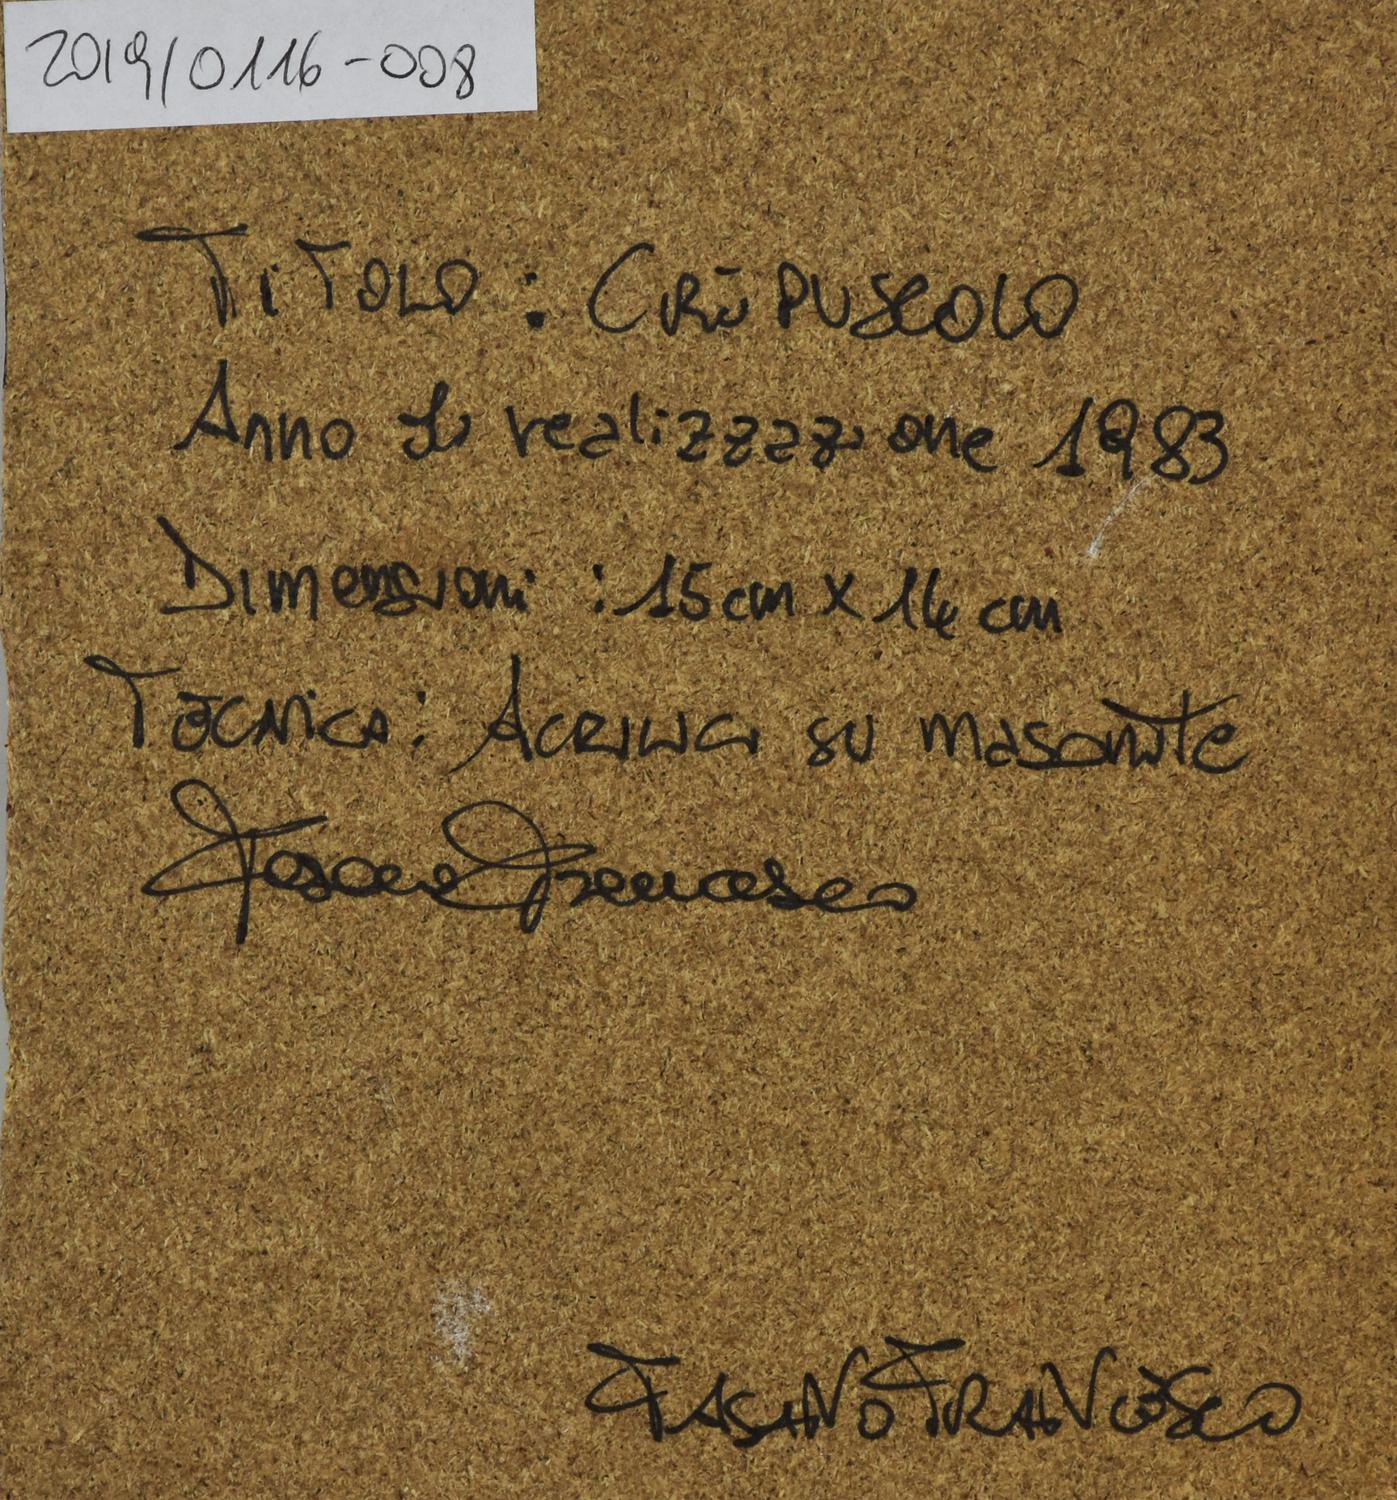 2019/0116-008
TiTOLO : CREPUSCOLO
Anno di realizzazione 1983
Dimensioni : 15cm x 14 cm
TECNICA: ACRILICI su masonite
Fasano Francesco
FASANO FRANCESCO